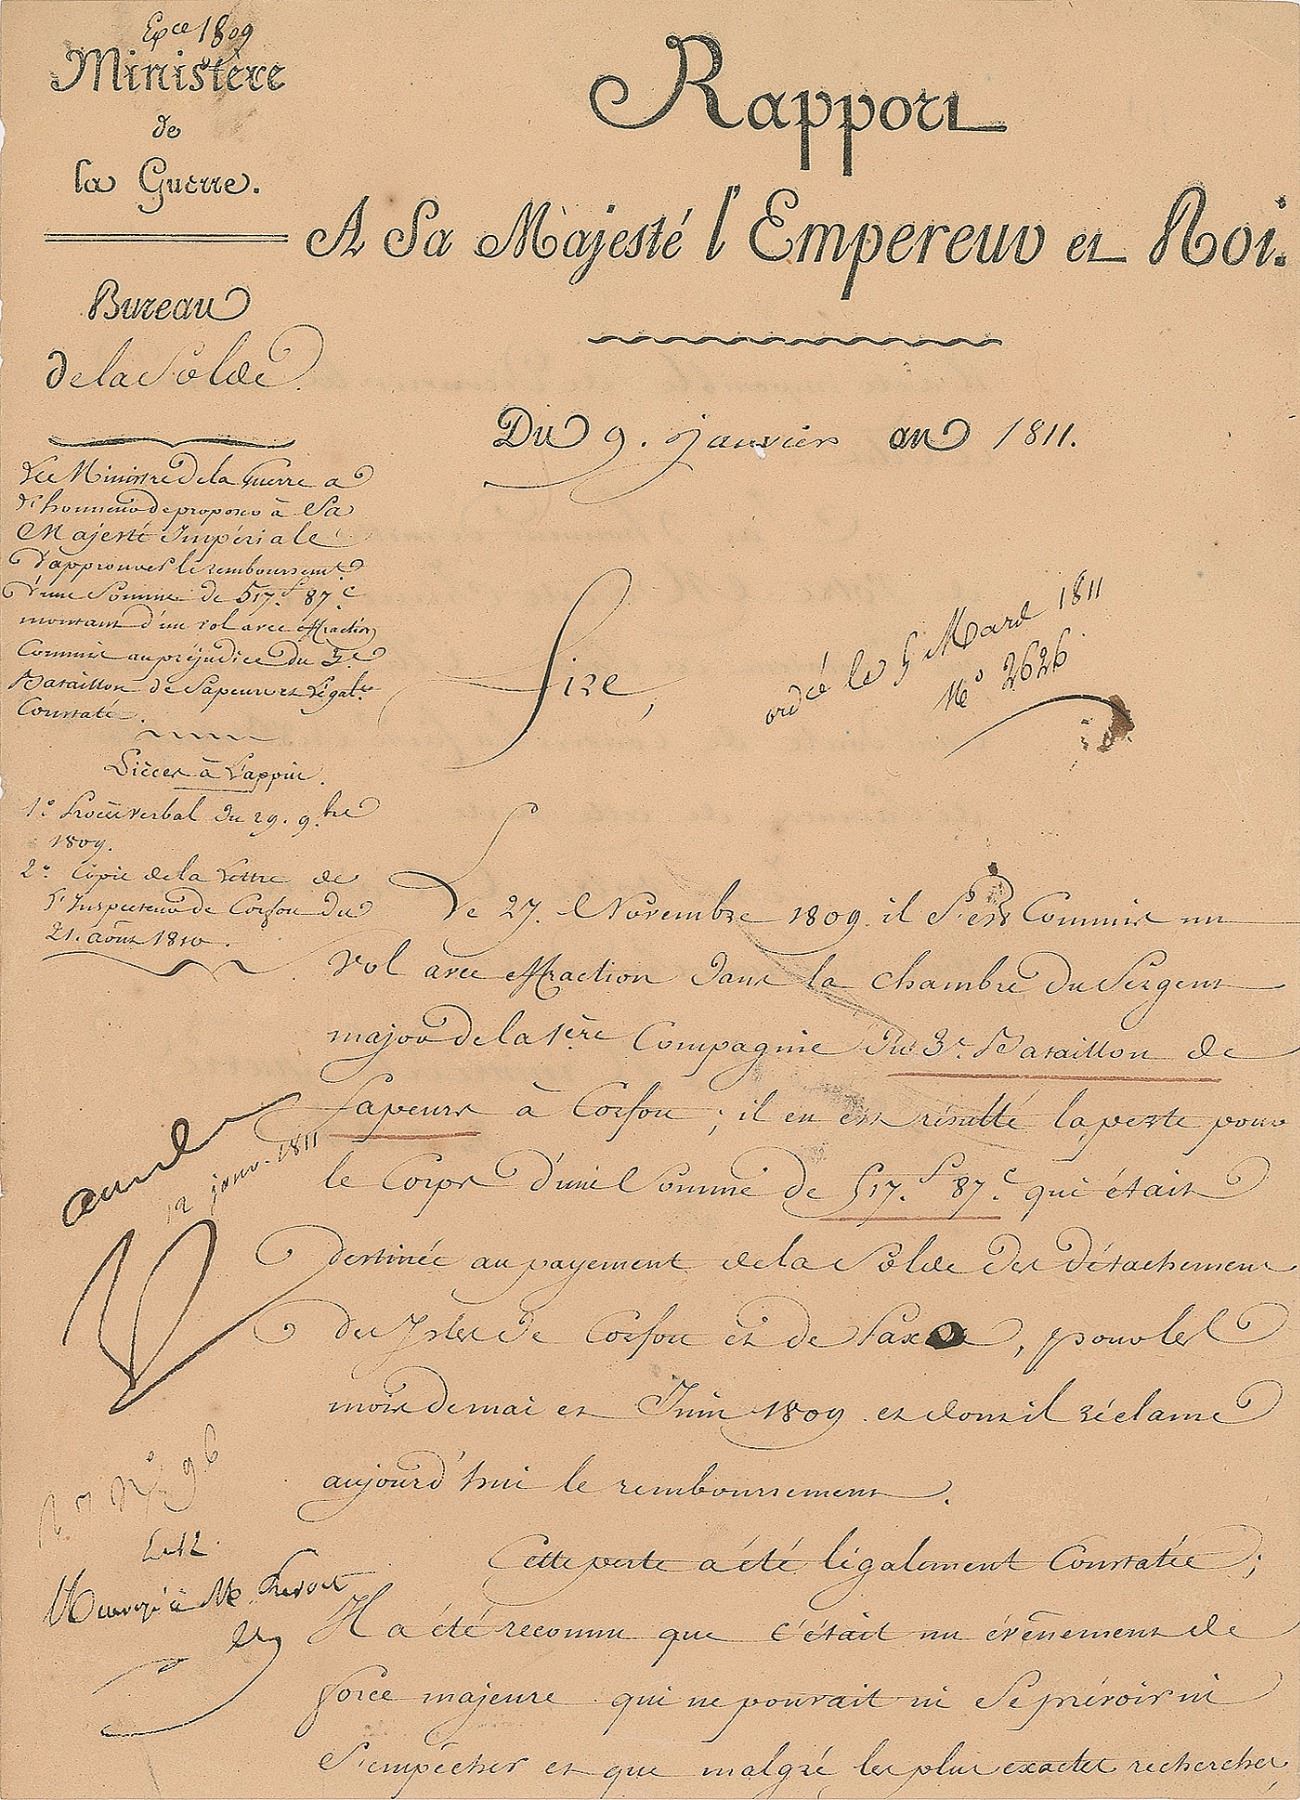 Exce 1809
Ministère
de
la Guerre.
Bureau
de la Solde.
Rapport
A Sa Majesté l'Empereur et Roi.
Du 9. janvier an 1811.
Le Ministre de la Guerre a
l'honneur de proposer à Sa
Majesté Impériale
d'approuver le remboursemt.
d'une Somme de 517.f 87.c
montant d'un vol avec effraction
Commis au préjudice du 3.e
Bataillon de Sapeurs et légalt.
Constaté.
Pièces à l'appui.
1.º Procès verbal du 29. 9.bre
1809.
2.º Copie de la Lettre de
l'Inspecteur de Corfou du
21. août 1810.
Sire,
ordcé le 5 Mard 1811
No 2626
Le 27. Novembre 1809. il S'est Commis un
vol avec effraction dans la chambre du Sergent
major de la 1ère Compagnie du 3.e Bataillon de
Sapeurs à Corfou ; il en est résulté la perte pour
le Corps d'une Somme de 517.f 87.c qui était
destinée au payement de la Solde des détachements
des Isles de Corfou et de Paxo, pour les
mois de mai et Juin 1809. et dont il réclame
aujourd'hui le remboursement.
Cette perte a été légalement Constatée ;
Il a été reconnu que c'était un évènement de
force majeure qui ne pouvait ni Se prévoir ni
S'empêcher et que malgré les plus exactes recherches,
12 janv. 1811
No 96
Le 12.
Renvoyé à Mr